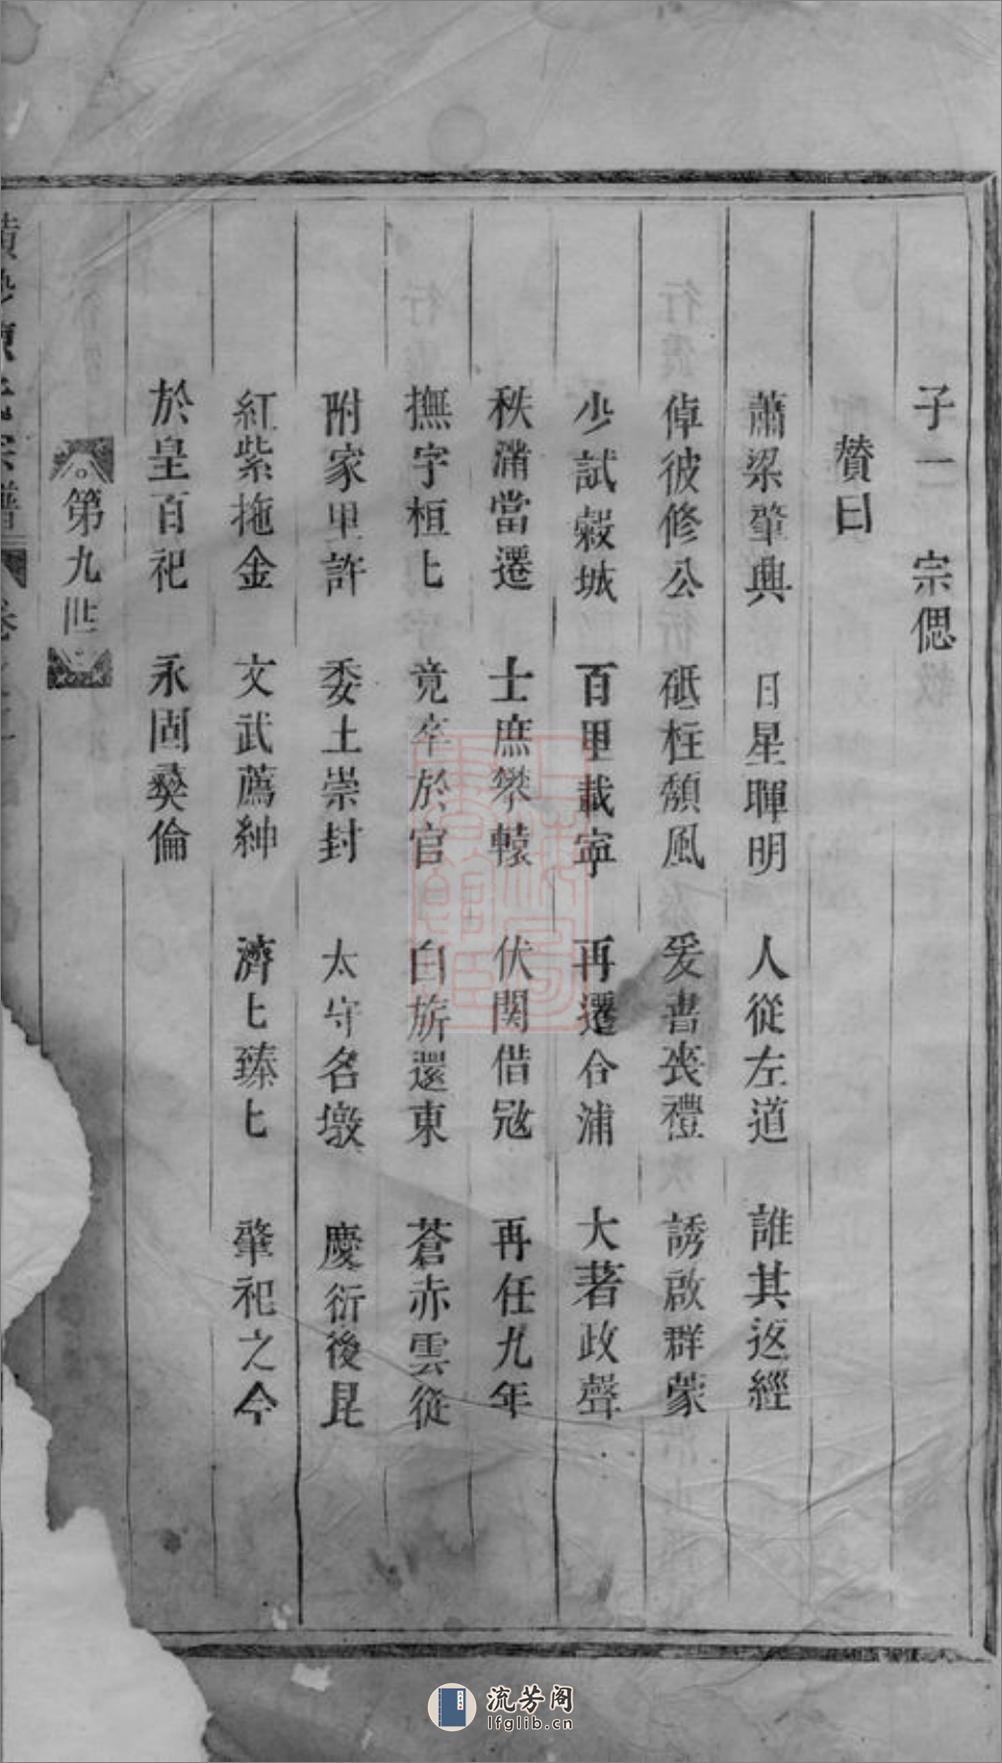 子一 宗偲
贊曰
蕭梁肇興 日星暉明 人從左道 誰其返經
倬彼修公 砥柱頹風 爰書喪禮 誘啟群蒙
少試穀城 百里載寧 再遷合浦 大著政聲
秩滿當遷 士庶攀轅 伏闕借寇 再任九年
撫字桓匕 竟卒於官 白旂還東 蒼赤雲從
附家里許 委土崇封 太守名墩 慶衍後昆
紅紫拖金 文武薦紳 濟匕臻匕 肇祀之今
於皇百祀 永固彜倫
第九世
宗譜
流芳阁
lfglib.cn